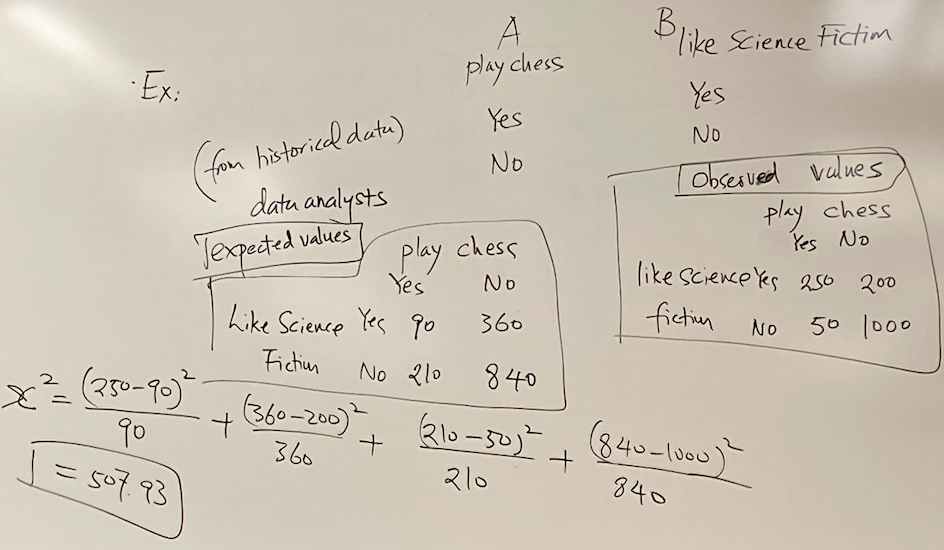 Ex:
A
play chess
Yes
No
B
like Science Fiction
Yes
No
(from historical data)
data analysts
expected values
play chess
Yes No
Like Science Yes 90 360
Fiction No 210 840
Observed values
play chess
Yes No
like Science Yes 250 200
fiction No 50 1000
x² = (250-90)²/90 + (360-200)²/360 + (210-50)²/210 + (840-1000)²/840
= 507.93